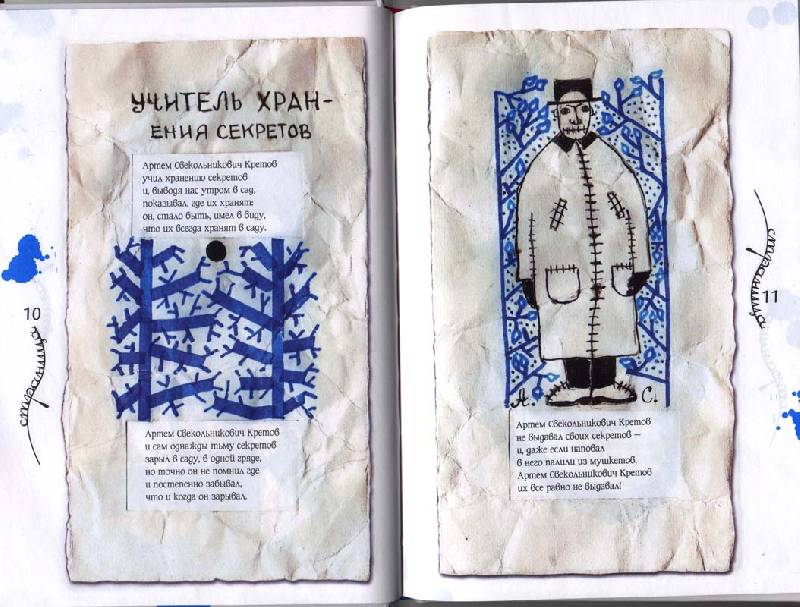 УЧИТЕЛЬ ХРАН-
ЕНИЯ СЕКРЕТОВ
Артем Свекольникович Кретов
учил хранению секретов
и, выводя нас утром в сад,
показывал, где их хранят:
он, стало быть, имел в виду,
что их всегда хранят в саду.
Артем Свекольникович Кретов
и сам однажды тьму секретов
зарыл в саду, в одной гряде,
но точно он не помнил где
и постепенно забывал,
что и когда он зарывал.
10
страница
А. С.
Артем Свекольникович Кретов
не выдавал своих секретов —
и, даже если наповал
в него палили из мушкетов,
Артем Свекольникович Кретов
их все равно не выдавал!
11
страница